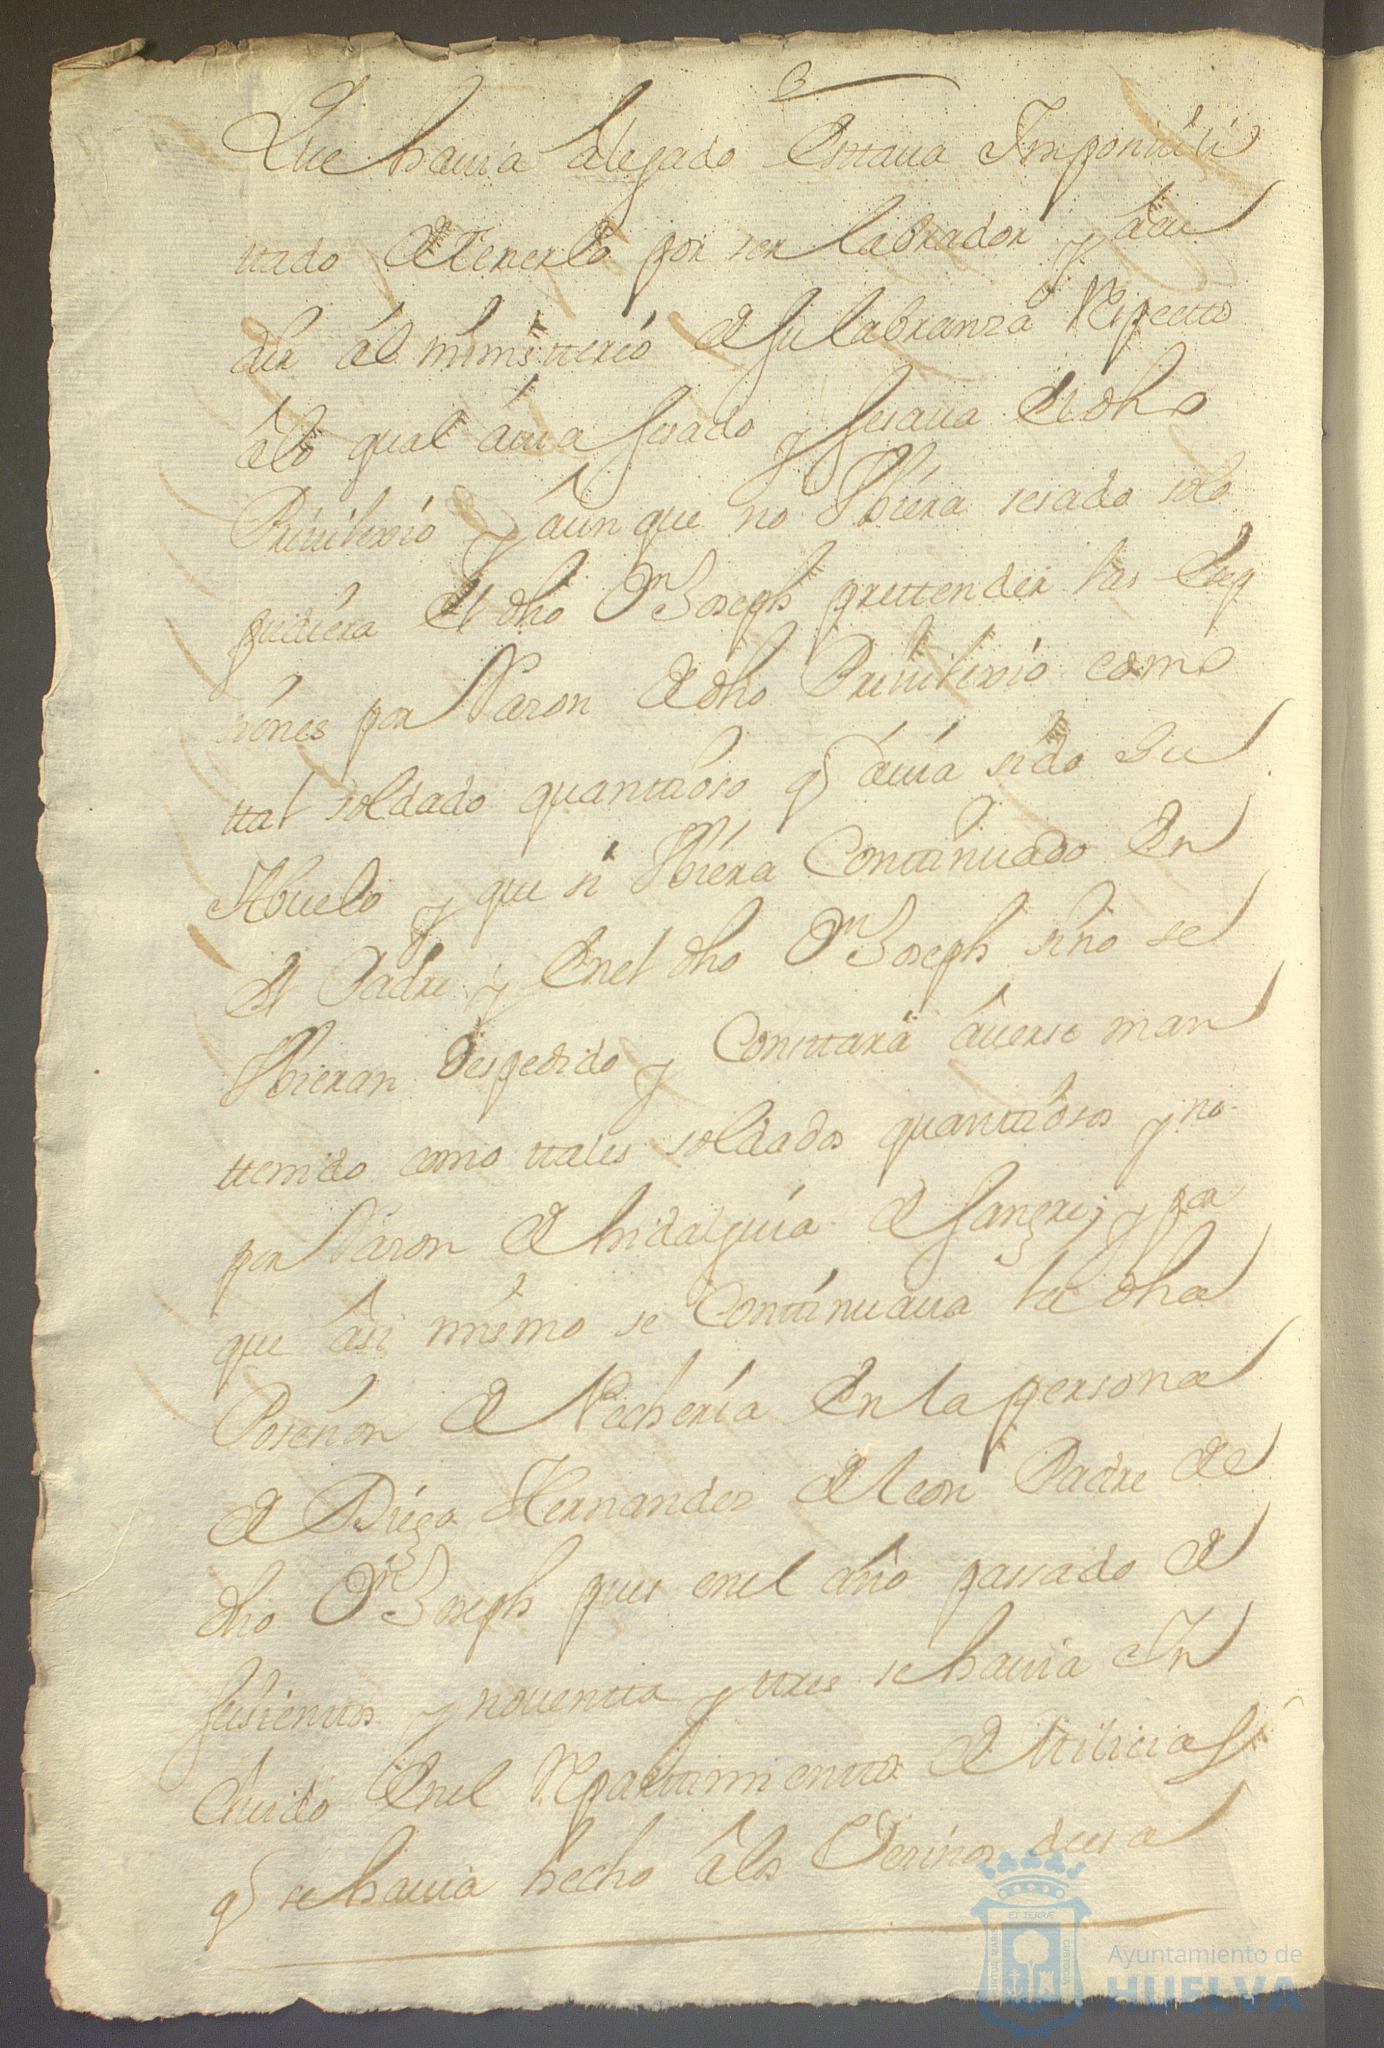 Que hauia Alegado Esttaua Imposiuili
ttado de Tenerlo por ser labrador y acu
dir al ministterio de su labranza Respectto
alo qual auia sesado y sesaua El dho
Priuilexio y aunque no Vbiera sesado solo
pudiera El dho Dn Joseph prettender las Exep
siones por Raron de dho Priuilexio como
ttal soldado quanttioso q auia sido su
Abuelo y que si Vbiera Conttinuado En
El Padre y Enel dho Dn Joseph sino se
Vbieran Despedido y Consttara auerse man
ttenido como ttales soldados quanttiosos y no
por Raron de hidalguia de sangre; y por
que asi mismo se Conttinuaua la dha
Posesion de Pecheria En la persona
de Diego Hernandez de leon Padre de
dho Dn Joseph pues enel año passado de
seisienttos y nouentta y ttres se hauia In
cluido Enel Reparttimientto de Milicias
q se hauia hecho alos Vesinos desa
ET TERRÆ
CUSTODIA
PORTUS MARIS
Ayuntamiento de
HUELVA